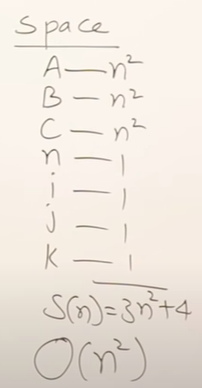 Space
A — n²
B — n²
C — n²
n — 1
i — 1
j — 1
k — 1
S(n) = 3n²+4
O(n²)